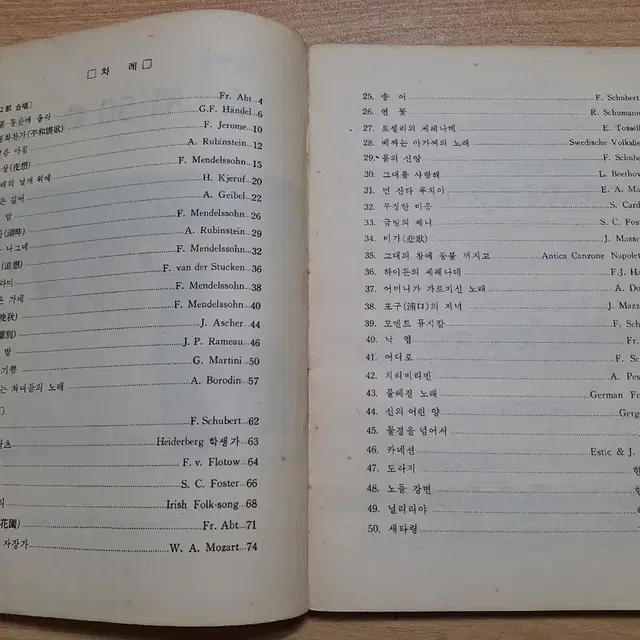 □ 차 례 □
部 合唱〕
동산에 올라 Fr. Abt 4
찬가(平和讚歌) G.F. Händel 6
아침 F. Jerome 10
(夜想) A. Rubinstein 12
날개 위에 F. Mendelssohn 15
길어 H. Kjeruf 20
밤 A. Geibel 22
(湖畔) F. Mendelssohn 26
나그네 A. Rubinstein 29
(追想) F. Mendelssohn 32
라미 F. van der Stucken 36
가네 F. Mendelssohn 38
晩秋) F. Mendelssohn 40
別) J. Ascher 44
밤 J. P. Rameau 46
기쁨 G. Martini 50
는 처녀들의 노래 A. Borodin 57
〕
F. Schubert 62
츠 Heiderberg 학생가 63
F. v. Flotow 64
S. C. Foster 66
의 Irish Folk-song 68
花園) Fr. Abt 71
자장가 W. A. Mozart 74
25. 송 어 F. Schubert
26. 연 꽃 R. Schumann
27. 토셀리의 세레나데 E. Tosell
28. 베짜는 아가씨의 노래 Swedische Volkslie
29. 봄의 신앙 F. Schube
30. 그대를 사랑해 L. Beethov
31. 먼 산타 루치아 E. A. M
32. 무정한 마음 S. Card
33. 금발의 제니 S. C. Foste
34. 비가(悲歌) J. Masse
35. 그대의 창에 등불 꺼지고 Antica Canzone Napolet
36. 하이든의 세레나데 F.J. Ha
37. 어머니가 가르치신 노래 A. Do
38. 포구(浦口)의 저녁 J. Mazz
39. 모멘트 뮤지칼 F. Sch
40. 낙 엽 Fr.
41. 어디로 F. Sc
42. 치리비리빈 A. Pes
43. 물레질 노래 German Fo
44. 신의 어린 양 Georg
45. 물결을 넘어서
46. 카네션 Estic & J.
47. 도라지 한
48. 노들 강변
49. 닐리리야
50. 새타령